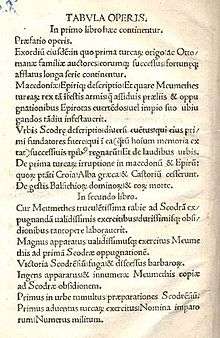 TABVLA OPERIS.
In primo libro hæc continentur.
Præfatio operis.
Exordiũ eiusdẽ:in quo prima turcaꝝ origo:ac Otto-
manæ familiæ auctores:eorumqꝫ successus:fortunæqꝫ
afflatus longa serie continentur.
Macedoniæ:Epiriqꝫ descriptio:Et quare Meumethes
turcaꝝ rex tã armis:qꝫ assiduis præliis & oppu-
gnationibus Epirotas uel impio suo iugo
gandos tãdiu infestauerit.
Vrbis Scodrę descriptio:
mi fandatores:fuerẽt:qui ĩ ea:quãtũ hoium memoria ex-
tat:successiuis regnarũt:& de laudibus urbis.
De prima turcaꝝ irruptione in macedoniã & Epirũ:
quoqꝫ pctõ Croia:Alba græca:& Castoriũ cesserunt.
De gestis Balsichioꝝ dominoꝝ:& eoꝝ morte.
In secundo libro.
Cur Meumethes tanta rabie ad Scodrã ex-
pugnandã ualidissimis exercitibus:durissimisqꝫ ob-
sidionibus tantopere laborauerit.
Magnus apparatus ualidissimusqꝫ exercitus Meume
this ad primã Scodræ oppugnationẽ.
Victoria Scodrẽsiũ:fuga:& discessus barbaroꝝ.
Ingens apparatus:& innumeræ Meumethis copiæ
ad Scodræ obsidionem.
Primus in urbe tumultus præparationes Scodrẽsiũ
Primus aduentus turcaꝝ exercitus:Nomina impato
rum:Numerus militum.